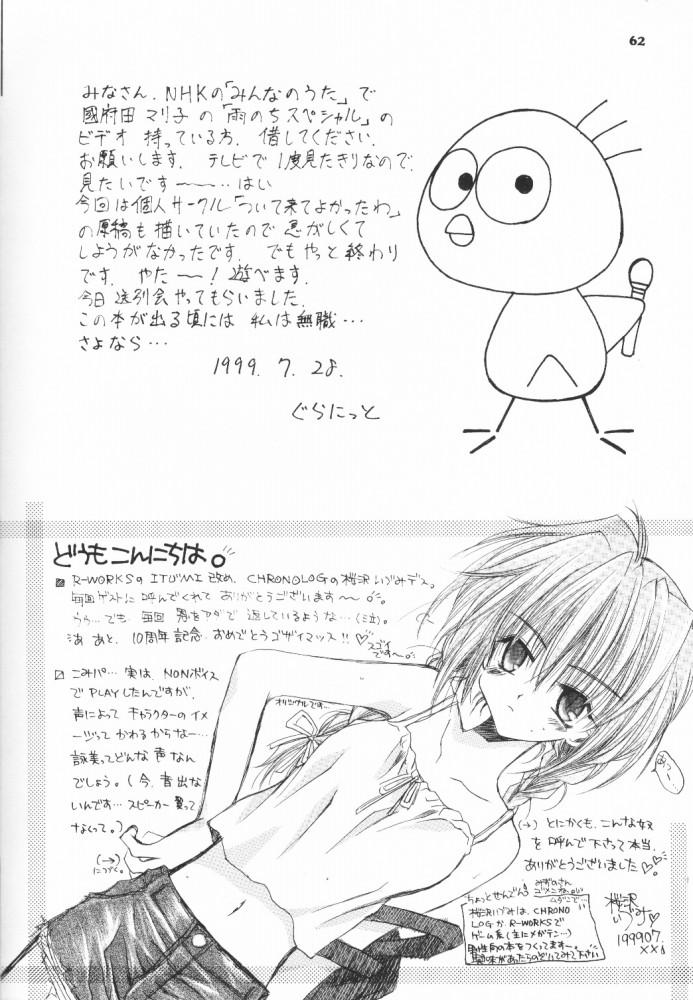 62
みなさん、NHKの「みんなのうた」で
國府田マリ子の「雨のちスペシャル」の
ビデオ持っている方、借してください。
お願いします。テレビで1度見たきりなので、
見たいです〜〜…はい
今回は個人サークル「ついて来てよかったわ」
の原稿も描いていたので忙しくて
しょうがなかったです。でもやっと終わり
です。やた〜!遊べます。
今日送別会やってもらいました。
この本が出る頃には私は無職…
さよなら…
1999. 7. 28.
ぐらにっと
どうもこんにちは。
R-WORKSのITUMI改め、CHRONOLOGの桜沢いづみデス。
毎回ゲストに呼んでくれてありがとうございます〜。
うぅ…でも、毎回恩をアダで返しているような…(泣)。
あ、あと、10周年記念おめでとうゴザイマッス!!♡
スゴイ
です〜。
こみパ…実は、NONボイス
でPLAYしたんですが、
声によってキャラクターのイメ
ージってかわるからなー…
詠美ってどんな声なん
でしょう。(今、音出な
いんです…スピーカー買って
なくって。)
(→)
につづく。
オリジナルです…
(→)とにかくも、こんな奴
を呼んで下さって本当、
ありがとうございました♡♡
ちょっとせんでん。
みずのさん
ゴメンなさい
桜沢いづみは、CHRONO
LOGか、R-WORKSで
ゲーム系(主にメガテン…)
男性向の本をつくってます〜。
興味があったらのぞいてみて下さい
桜沢
いづみ♡
199907.
××